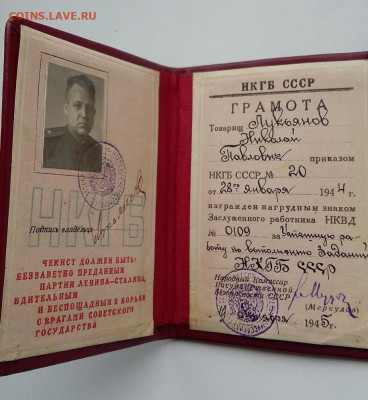 COINS.LAVE.RU
НКГБ
Подпись владельца
ЧЕКИСТ ДОЛЖЕН БЫТЬ:
БЕЗЗАВЕТНО ПРЕДАННЫМ
ПАРТИИ ЛЕНИНА—СТАЛИНА,
БДИТЕЛЬНЫМ
И БЕСПОЩАДНЫМ В БОРЬБЕ
С ВРАГАМИ СОВЕТСКОГО
ГОСУДАРСТВА
НКГБ СССР
ГРАМОТА
Товарищ Лукьянов
Николай
Павлович приказом
НКГБ СССР № 20
от 28го января 1944 г.
награжден нагрудным знаком
Заслуженного работника НКВД
№ 0109 за Успешную ра-
боту по выполнению Заданий
НКГБ СССР
Народный Комиссар
Государственной
Безопасности СССР
(Меркулов)
1945г.